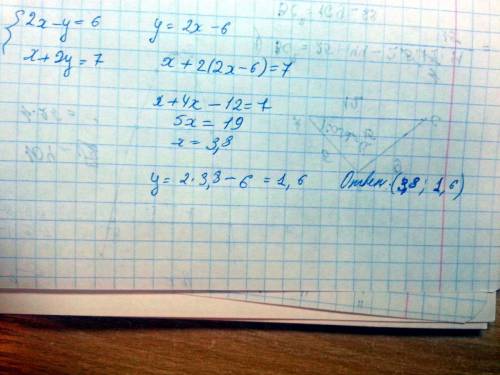 {2x-y=6 y=2x-6
x+2y=7 x+2(2x-6)=7
x+4x-12=7
5x=19
x=3,8
y=2·3,8-6=1,6 Ответ: (3,8; 1,6)